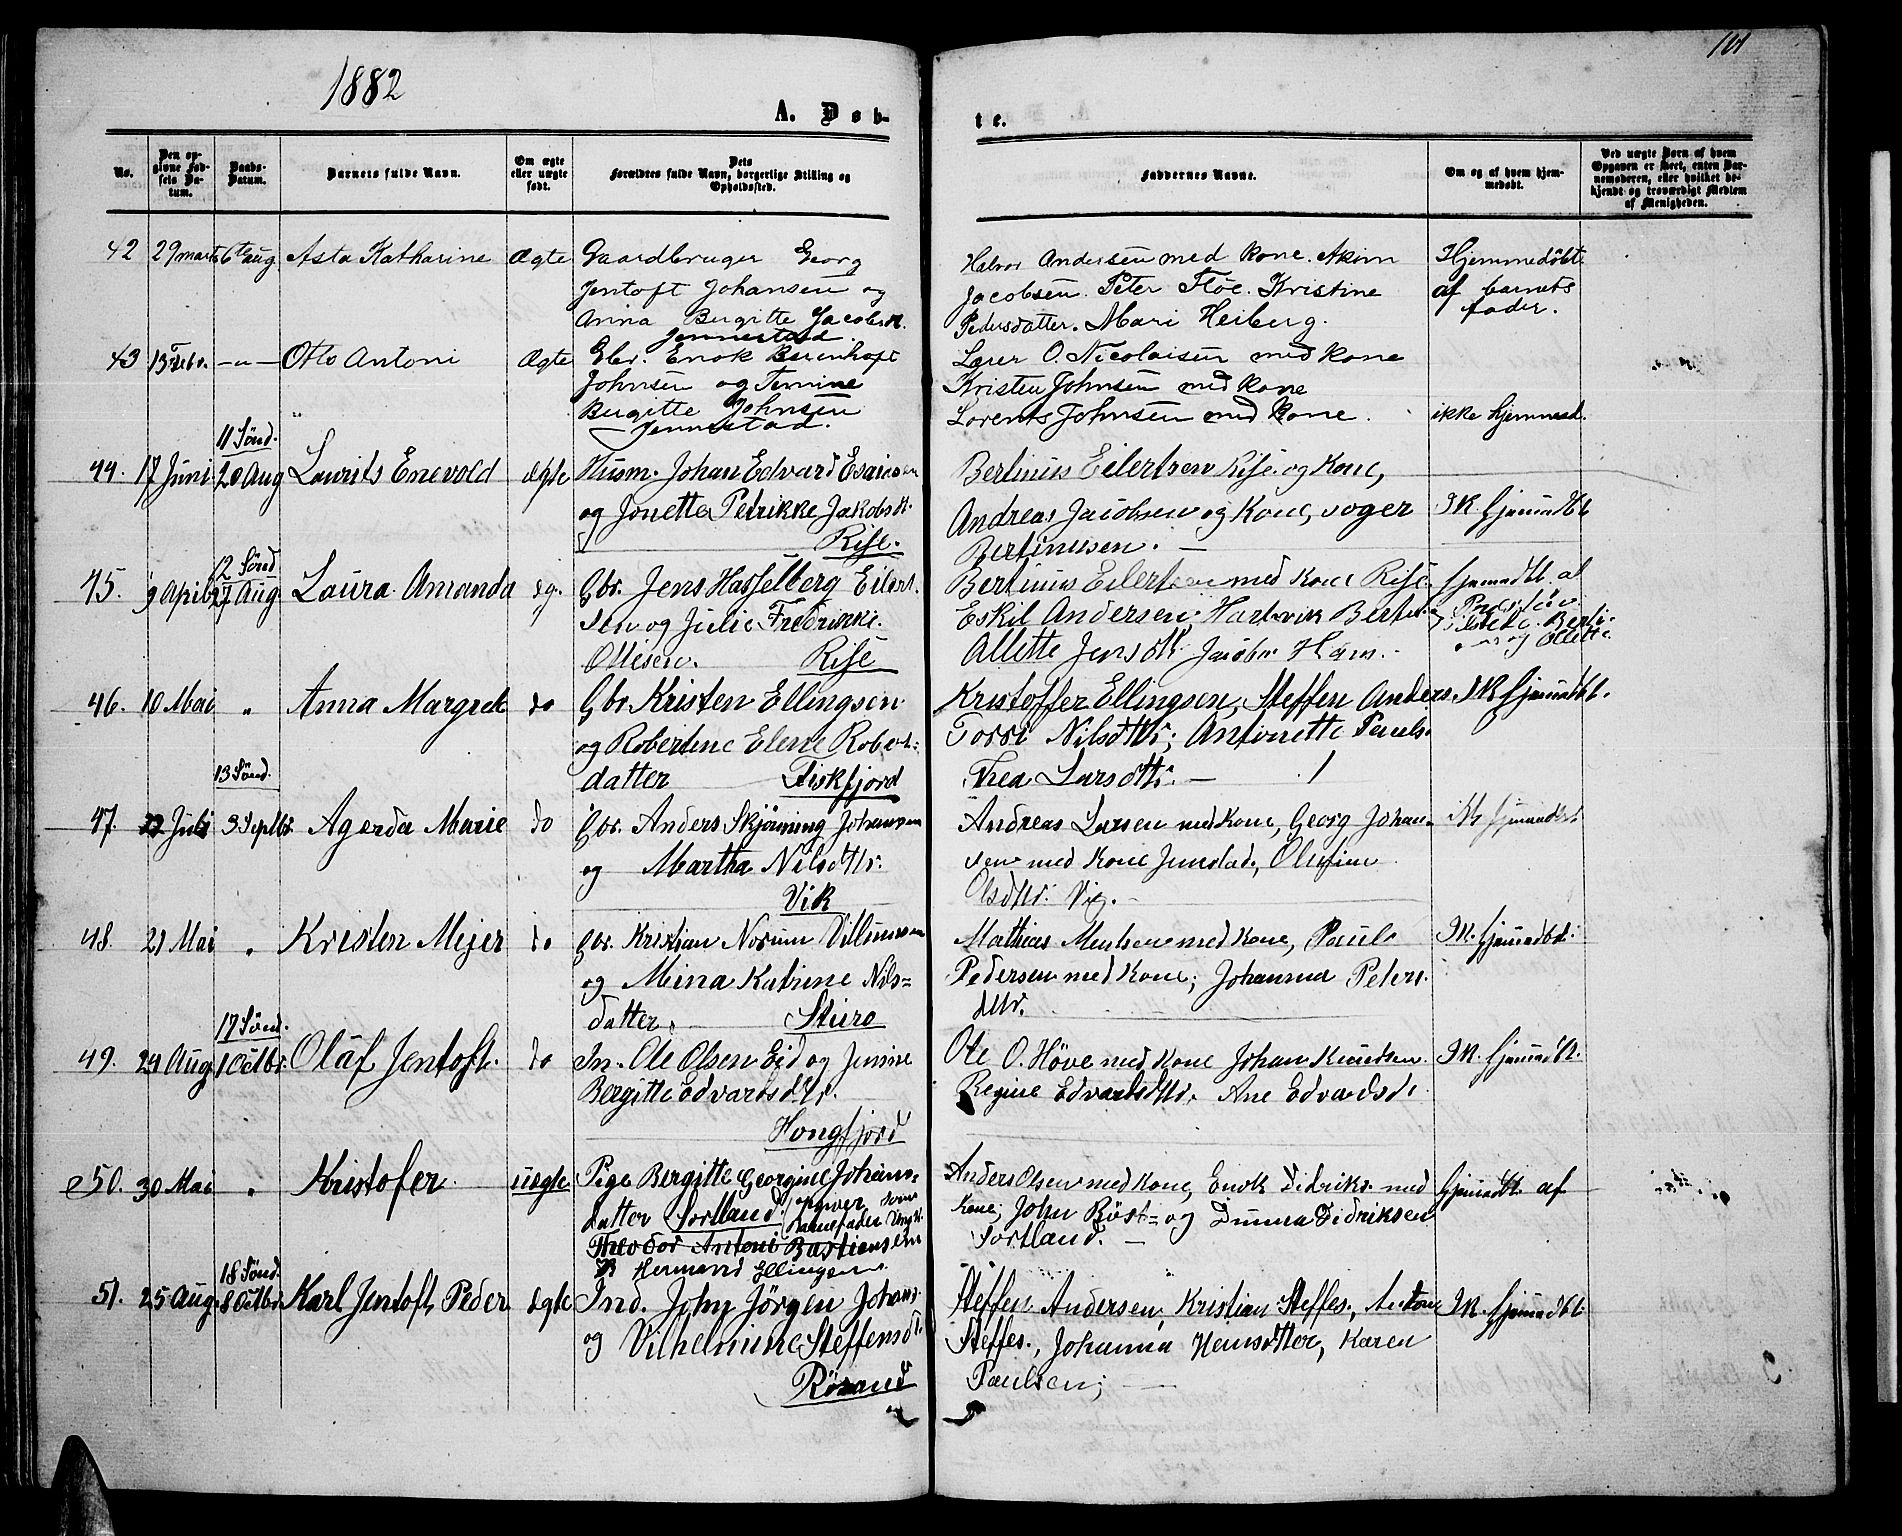 1882
101
A. Døb-
te.
No.
Den op-
givne Fød-
sels Da-
tum.
Daabs-
Datum.
Barnets fulde Navn.
Om ægte
eller uægte
født.
Dets
Forældres fulde Navn, borgerlige Stilling og
Opholdssted.
Faddernes Navne.
Om og af hvem hjem-
medøbt.
Ved uægte Børn af hvem
Opgaven er skeet, enten Bar-
nemoderen, eller hvilket be-
kjendt og troværdigt Medlem
af Menigheden.
42 29 marts 6te Aug. Asta Katharine Ægte Gaardbruger Georg
Jentoft Johansen og
Anna Birgitte Jacobsdt.
Jennestad.
Halvor Andersen med kone. Akim
Jacobsen. Peter Floe. Kristine
Pedersdatter. Mari Heiberg.
Hjemmedøbt
af barnets
fader.
43 13 Febr. -"- Otto Antoni Ægte Gbr. Enok Berenhoft
Johnsen og Temine
Birgitte Johnsen
Jennestad.
Lærer O. Nicolaisen med kone
Kristen Johnsen med kone
Lorents Johnsen med kone.
ikke hjemmed.
11 Sønd.
44. 17 Juni 20 Aug Laurits Enevold ægte Husm. Johan Edvard Esaiassen
og Jonette Petrikke Jakobsdt.
Rise.
Bertinus Eilertsen Rise og Kone,
Andreas Jacobsen og Kone, Roger
Bertinusen.
Ik. hjemmedbt.
12 Sønd
45. 9 April 27 Aug Laura Amanda Gbr. Jens Hasselberg Eilert-
sen og Julie Fredrikke
Olsen. Rise
Bertinus Eilertsen med Kone Rise
Eskil Andersen, Hartvik Bertin
Allette Jensdtr. Jacob Hans.
46. 10 Mai " Anna Margrete do Gbr. Kristen Ellingsen
og Robertine Elene Roberts-
datter Fiskfjord
Kristoffer Ellingsen, Steffen Anders.
Torri Nilsdttr; Antonette Pauls.
Thea Larsdttr.
Ik hjemmedbt.
13 Sønd.
47. Juli 3 Septbr Agerda Marie do Gbr. Anders Skjønning Johansen
og Martha Nilsdttr.
Vik
Andreas Larsen med Kone, Georg Johan-
sen med Kone Jennstad, Olufine
Olsdttr. Vig.
Ik hjemmedbt.
48. 21 Mai " Kristen Mejer do Gbr. Kristian Norum Villumsen
og Mina Katrine Nils-
datter.
Mathias Mentsen med Kone, Paul
Pedersen med Kone; Johanna Peters
dttr.
Ik. hjemmedbt.
17 Sønd.
49. 24 Aug 1 Octbr. Olaf Jentoft. do In. Ole Olsen Eid og Jenine
Bergitte Edvardsdttr.
Hongfjord
Ole O. Höve med Kone Johan Knudsen
Regine Edvardsdttr. Ane Edvardsdt.
Ik. hjemmedbt.
50. 30 Mai " Kristofer uægte Pige Bergitte Georgine Johans-
datter Sortland.
Barnefader Ungk.
Theodor Antoni Bastiansen
Hermand Ellingsen
Anders Olsen med Kone, Enok Didriks. med
Kone, John Röst- og Dunna Didriksen
Sortland.
hjemmedbt. af
18 Sønd.
51. 25 Aug. 8 Octbr. Karl Jentoft Peder ægte Ind. John Jörgen Johans-
og Vilhelmine Steffensdt.
Rösand
Steffen Andersen, Kristian Steffes., Anton
Steffes., Johanna Hemsdtter, Karen
Paulsen;
Ik. hjemmedbt.